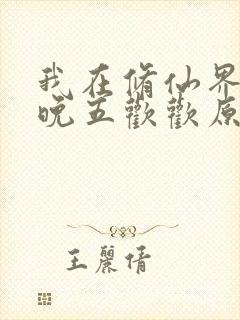 我在脩仙界
晚五歡歡原
王麗倩